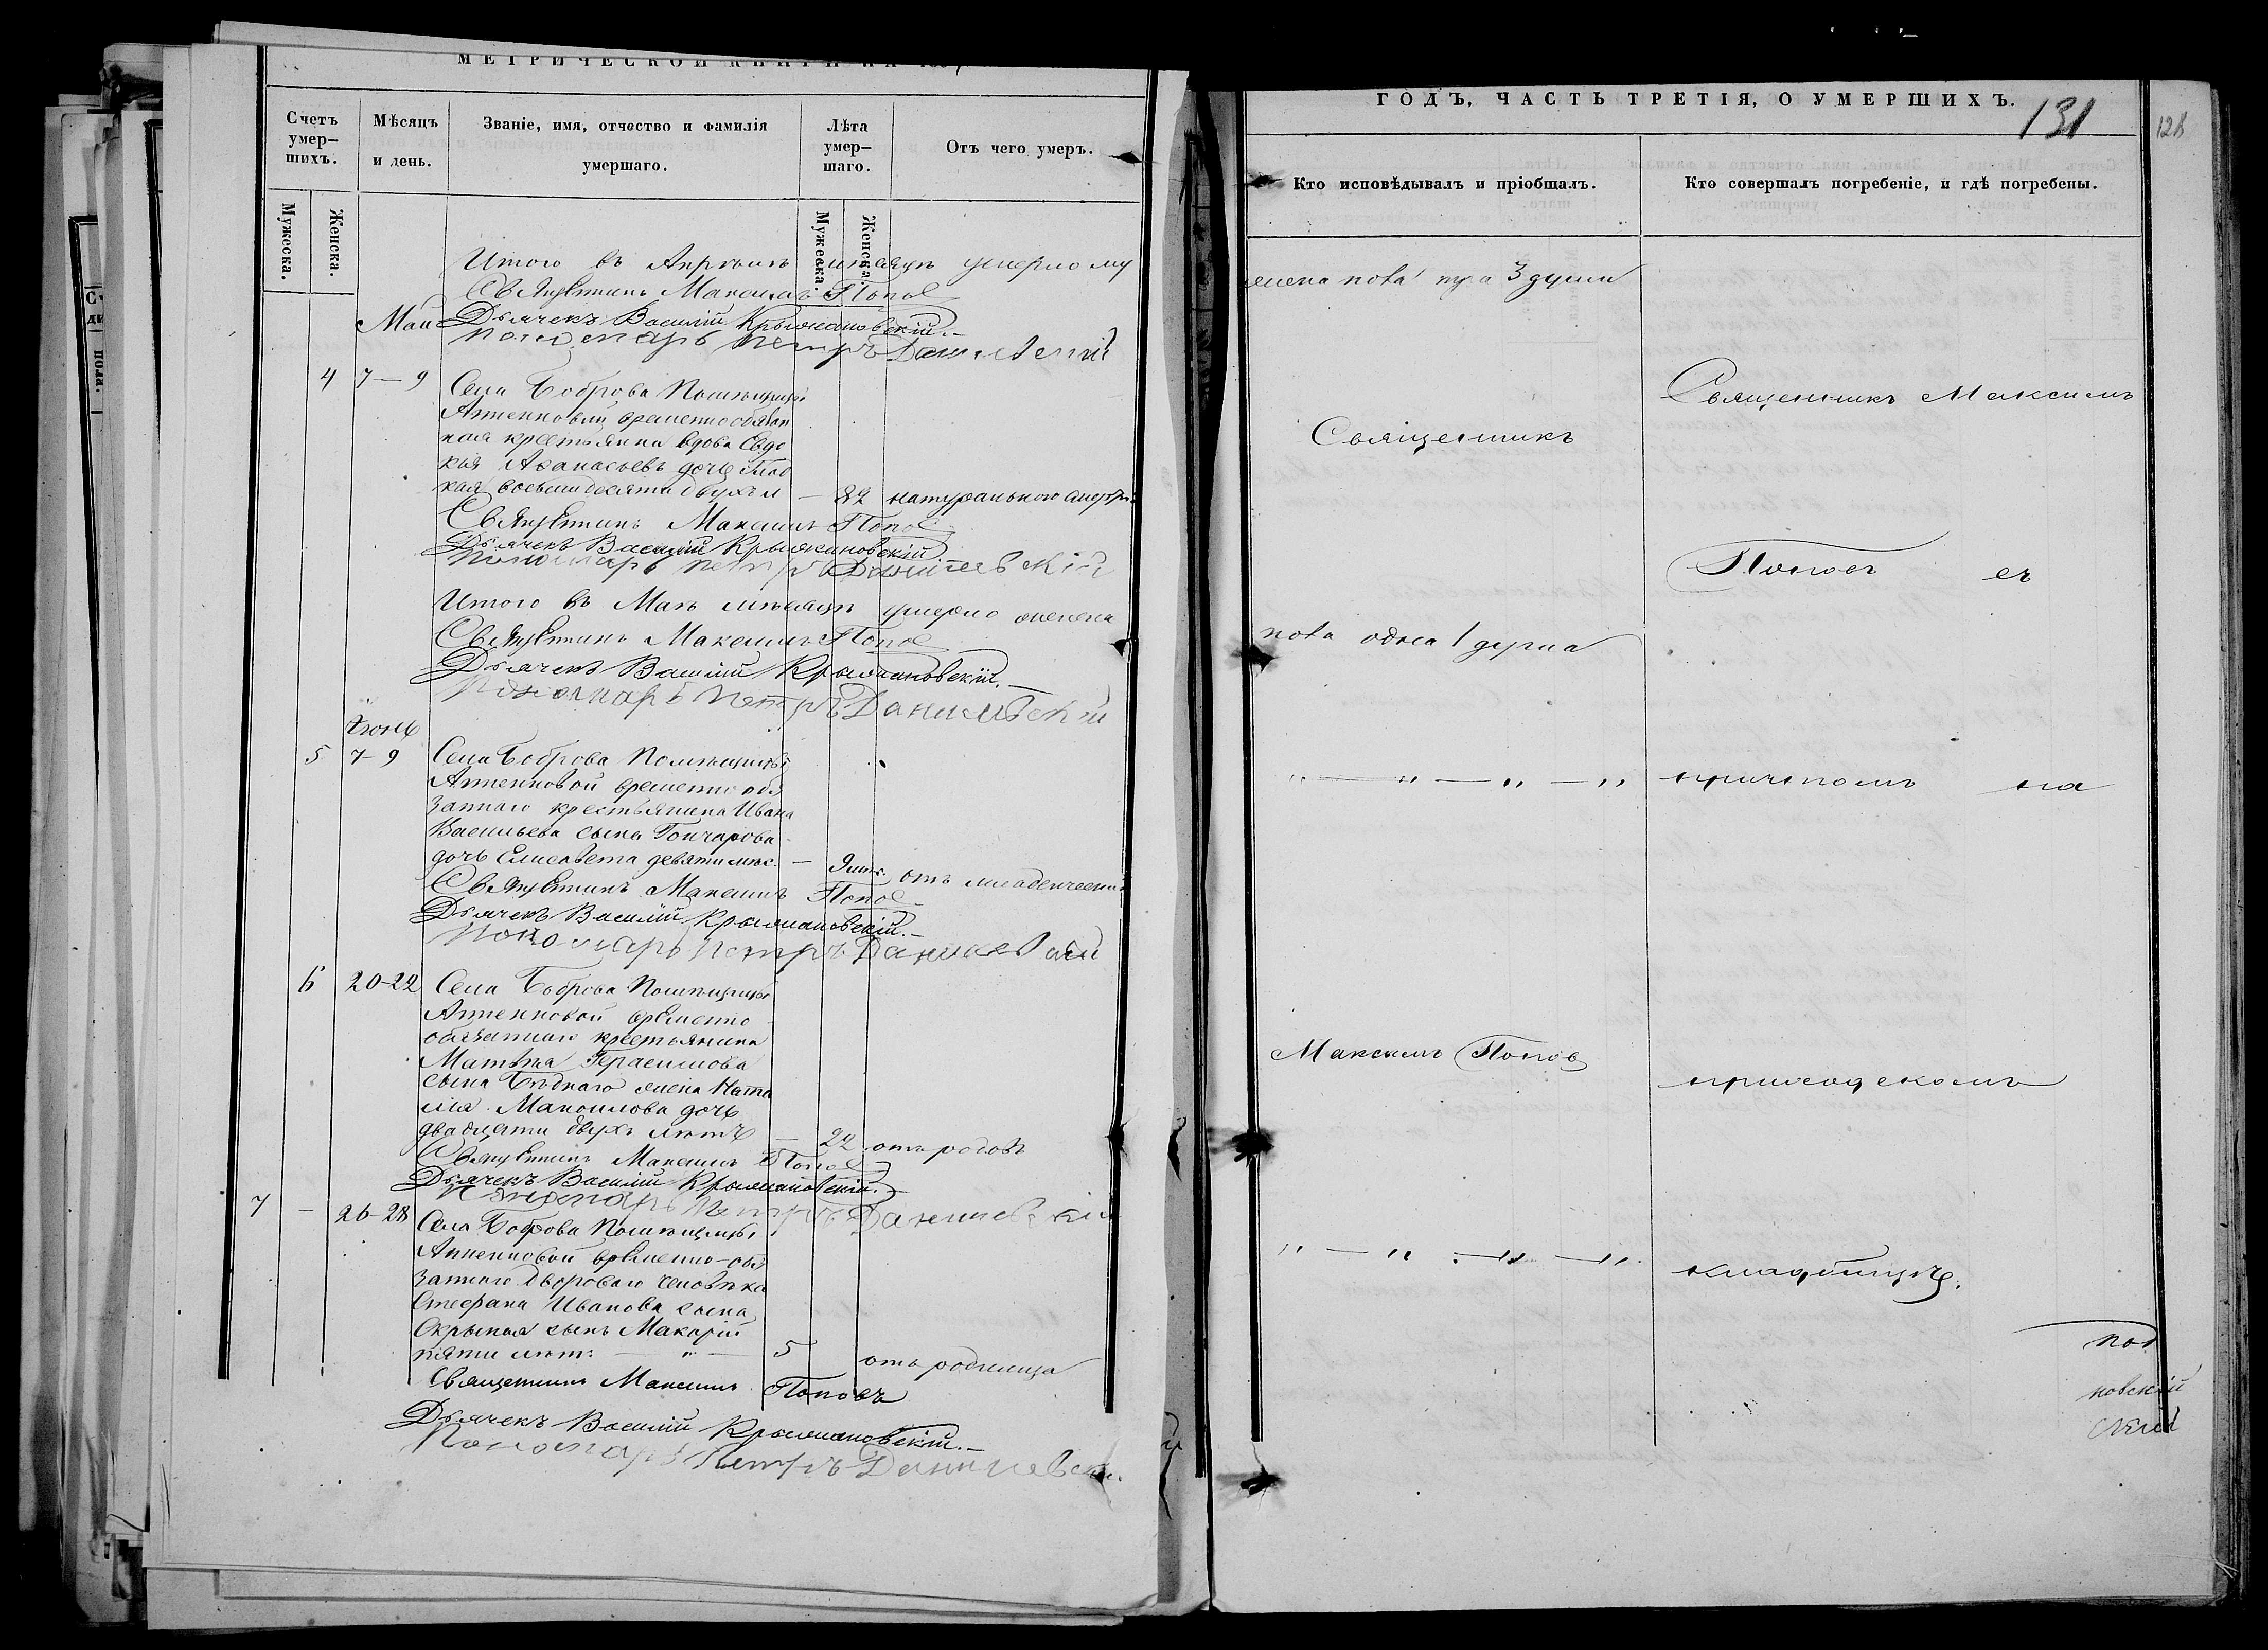 МЕТРИЧЕСКОЙ КНИГИ НА
Счетъ умер-шихъ.
Мѣсяцъ и день.
Званіе, имя, отчество и фамилія умершаго.
Лѣта умер-шаго.
Отъ чего умеръ.
Мужеска.
Женска.
Мужеска.
Женска.
Итого въ Апрѣлѣ мѣсяцѣ умерло му
Священникъ Максимъ Поповъ
Май
Дьячекъ Василій Крыжановскій.
Пономарь Петръ Данилевскій
4 7–9 Села Боброва Помѣщицы
Анненковой временнообязан
ная крестьянка вдова Евдо
кія Аѳанасьева дочь
кая восьмидесяти двухъ л — 82 натуральною смерт.
Священникъ Максимъ Поповъ
Дьячекъ Василій Крыжановскій
Пономарь Петръ Данилевскій
Итого въ Маѣ мѣсяцѣ умерло женска
Священникъ Максимъ Поповъ
Дьячекъ Василій Крыжановскій.
Пономарь Петръ Данилевскій
Іюнь
5 7–9 Села Боброва Помѣщицы
Анненковой временно обя
заннаго крестьянина Ивана
Васильева сына Гончарова
дочь Елисавета девяти мѣс. — 9 мѣс. отъ младенческой
Священникъ Максимъ Поповъ
Дьячекъ Василій Крыжановскій.
Пономарь Петръ Данилевскій
6 20-22 Села Боброва Помѣщицы
Анненковой временно
обязаннаго крестьянина
Матвѣя Герасимова
сына Бѣднаго жена Ната
лія Мануилова дочь
двадцати двухъ лѣтъ — 22 отъ родовъ
Священникъ Максимъ Поповъ
Дьячекъ Василій Крыжановскій.
Пономарь Петръ Данилевскій
7 — 26-28 Села Боброва Помѣщицы
Анненковой временно-обя
заннаго двороваго человѣка
Стефана Иванова сына
сынъ Макарій
пяти лѣтъ — " — 5 отъ родимца
Священникъ Максимъ Поповъ
Дьячекъ Василій Крыжановскій.
Пономарь Петръ Данилевскій
ГОДЪ, ЧАСТЬ ТРЕТІЯ, О УМЕРШИХЪ.
131
128
Кто исповѣдывалъ и пріобщалъ.
Кто совершалъ погребеніе, и гдѣ погребены.
жеска пола 3 души
Священникъ Максимъ
Священникъ
Поповъ съ
пола одна 1 душа
" — " — " — " причтомъ на
Максимъ Поповъ
приходскомъ
" — " — " — " кладбищѣ.
Поп
новскій